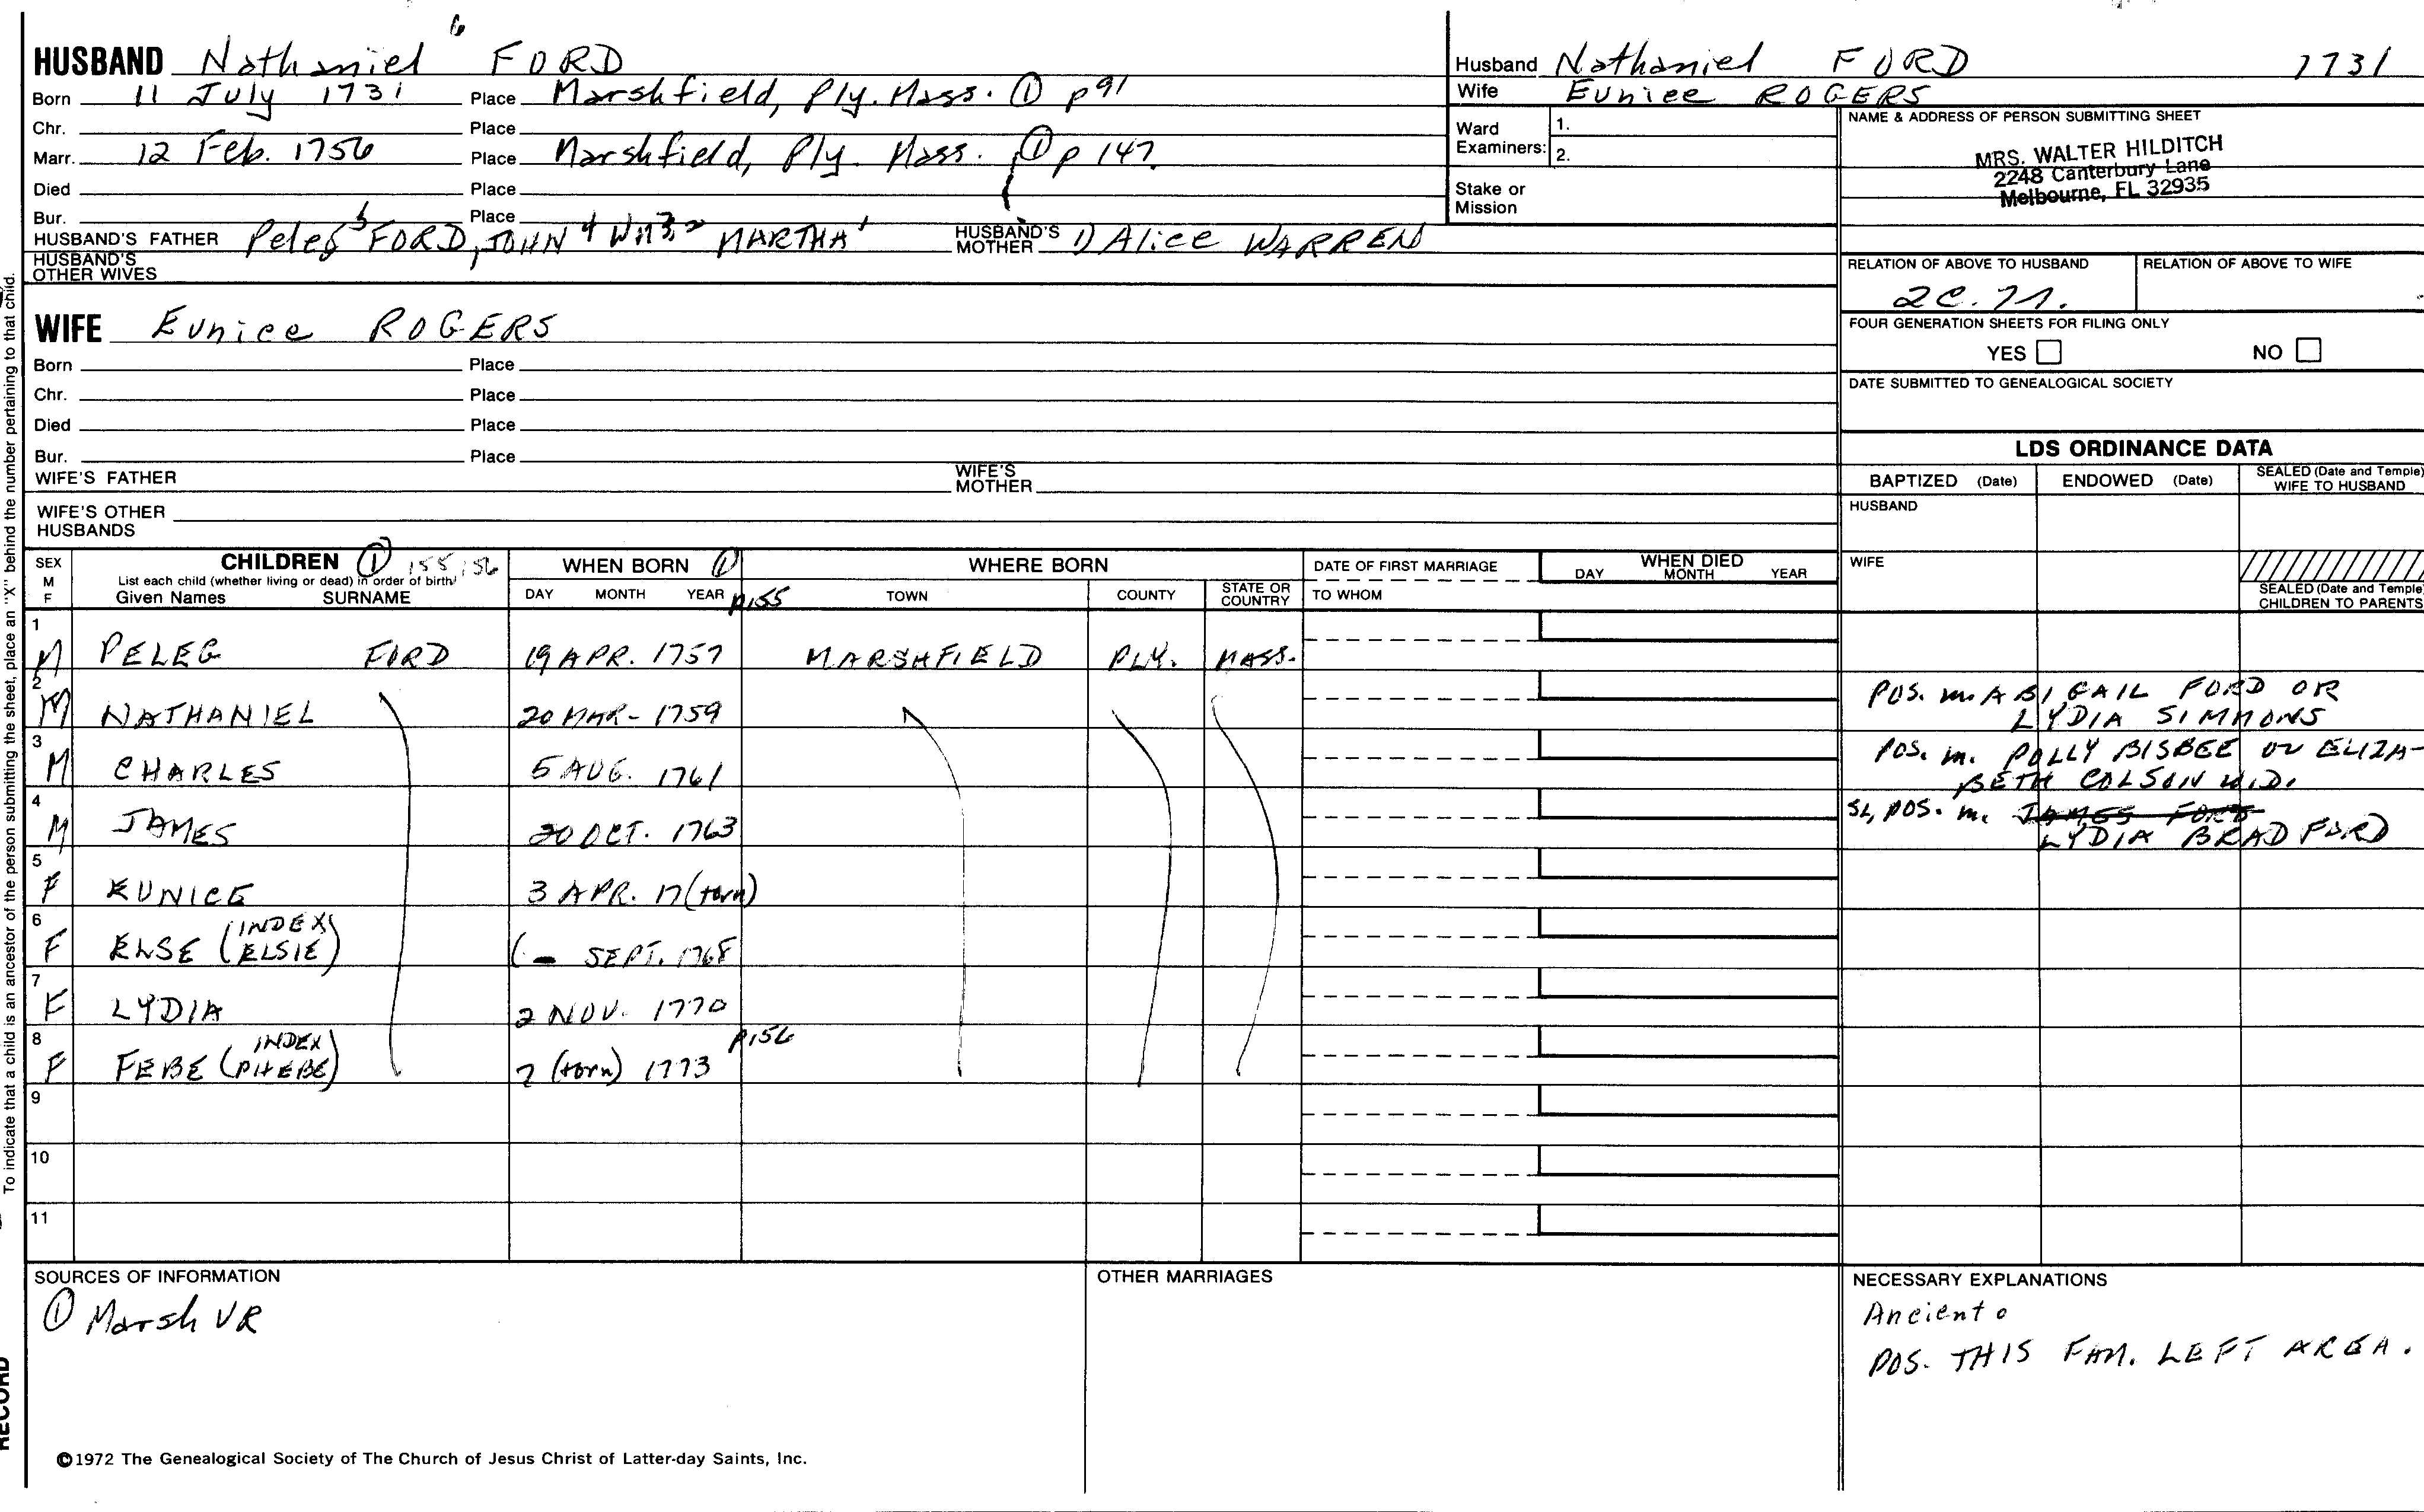 HUSBAND Nathaniel 6 FORD
Born 11 July 1731 Place Marshfield, Ply. Mass. ① p 91
Chr. Place
Marr. 12 Feb. 1756 Place Marshfield, Ply. Mass. ① p 147
Died Place
Bur. Place
HUSBAND'S FATHER Peleg 5 FORD, JOHN 4 Wm 3, 2 MARTHA 1 HUSBAND'S MOTHER 1) Alice WARREN
HUSBAND'S OTHER WIVES
WIFE Eunice ROGERS
Born Place
Chr. Place
Died Place
Bur. Place
WIFE'S FATHER WIFE'S MOTHER
WIFE'S OTHER HUSBANDS
Husband Nathaniel FORD 1731
Wife Eunice ROGERS
Ward Examiners: 1.
2.
Stake or Mission
NAME & ADDRESS OF PERSON SUBMITTING SHEET
MRS. WALTER HILDITCH
2248 Canterbury Lane
Melbourne, FL 32935
RELATION OF ABOVE TO HUSBAND RELATION OF ABOVE TO WIFE
FOUR GENERATION SHEETS FOR FILING ONLY
YES NO
DATE SUBMITTED TO GENEALOGICAL SOCIETY
LDS ORDINANCE DATA
BAPTIZED (Date) ENDOWED (Date) SEALED (Date and Temple) WIFE TO HUSBAND
HUSBAND
WIFE
SEALED (Date and Temple) CHILDREN TO PARENTS
SEX M F CHILDREN ① 155, 156 WHEN BORN ① WHERE BORN DATE OF FIRST MARRIAGE WHEN DIED
List each child (whether living or dead) in order of birth
Given Names SURNAME DAY MONTH YEAR p155 TOWN COUNTY STATE OR COUNTRY TO WHOM DAY MONTH YEAR
1 M PELEG FORD 19 APR. 1757 MARSHFIELD PLY. MASS.
2 M NATHANIEL 20 MAR- 1759 POS. m. ABIGAIL FORD OR
LYDIA SIMMONS
3 M CHARLES 5 AUG. 1761 POS. m. POLLY BISBEE or ELIZA-
BETH COLSON W.D.
4 M JAMES 20 OCT. 1763 SL, POS. m. JAMES FORD
LYDIA BRADFORD
5 F EUNICE 3 APR. 17(torn)
6 F ELSE (INDEX ELSIE) (- SEPT. 1768
7 F LYDIA 2 NOV. 1770
8 F FEBE (INDEX PHEBE) 7 (torn) 1773 p156
9
10
11
SOURCES OF INFORMATION
① Marsh VR
OTHER MARRIAGES
NECESSARY EXPLANATIONS
Ancient o
POS. THIS FAM. LEFT AREA.
©1972 The Genealogical Society of The Church of Jesus Christ of Latter-day Saints, Inc.
To indicate that a child is an ancestor of the person submitting the sheet, place an "X" behind the number pertaining to that child.
RECORD